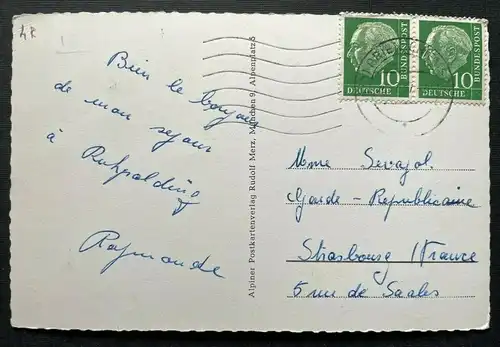 Bien le bonjour
de mon sejour
à Ruhpolding
Raymonde
Alpiner Postkartenverlag Rudolf Merz, München 9, Alpenplatz 5
10
DEUTSCHE
BUNDESPOST
10
DEUTSCHE
BUNDESPOST
Mme Sevajol
Garde - Republicaine
Strasbourg (France
5 rue de Saales